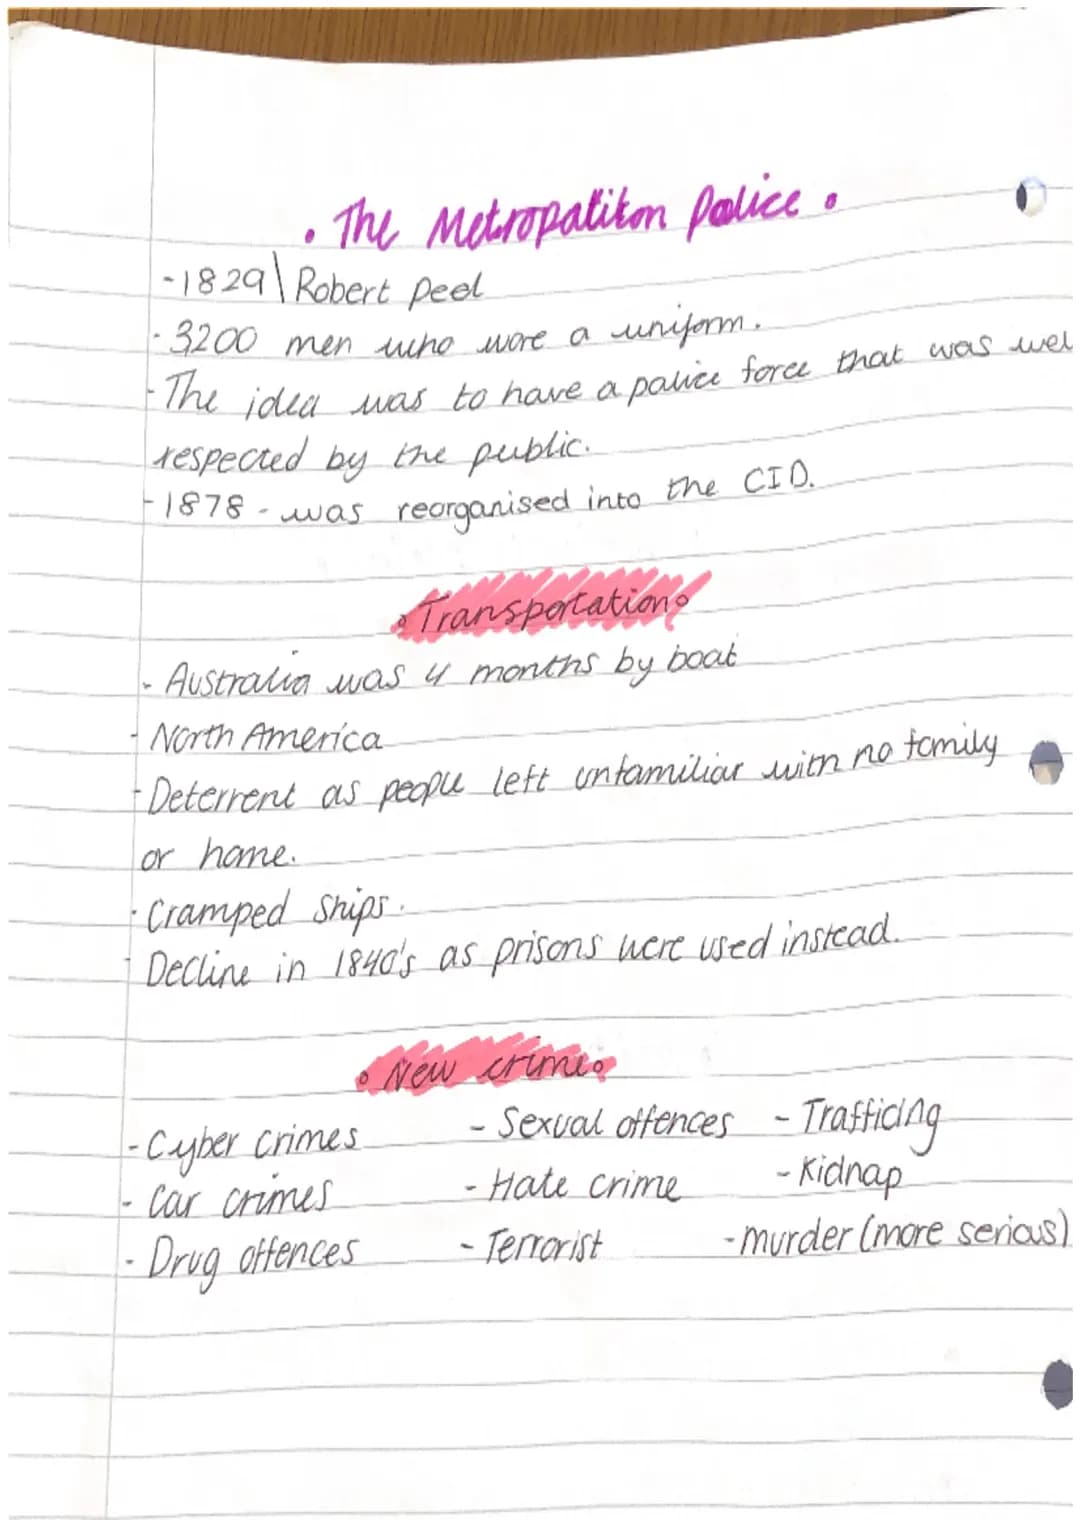 • The Metropaliton Police •
-1829\ Robert peel
- 3200 men who wore a uniform.
- The idea was to have a police force that was wel
respected by the public.
- 1878 - was reorganised into the CID.
• Transportation •
- Australia was 4 months by boat
- North America
- Deterrent as people left unfamiliar with no family
or home.
- Cramped ships.
- Decline in 1840's as prisons were used instead.
• New crime •
- Cyber crimes - Sexual offences - Trafficing
- Car crimes - Hate crime - Kidnap
- Drug offences - Terrorist - murder (more serious)